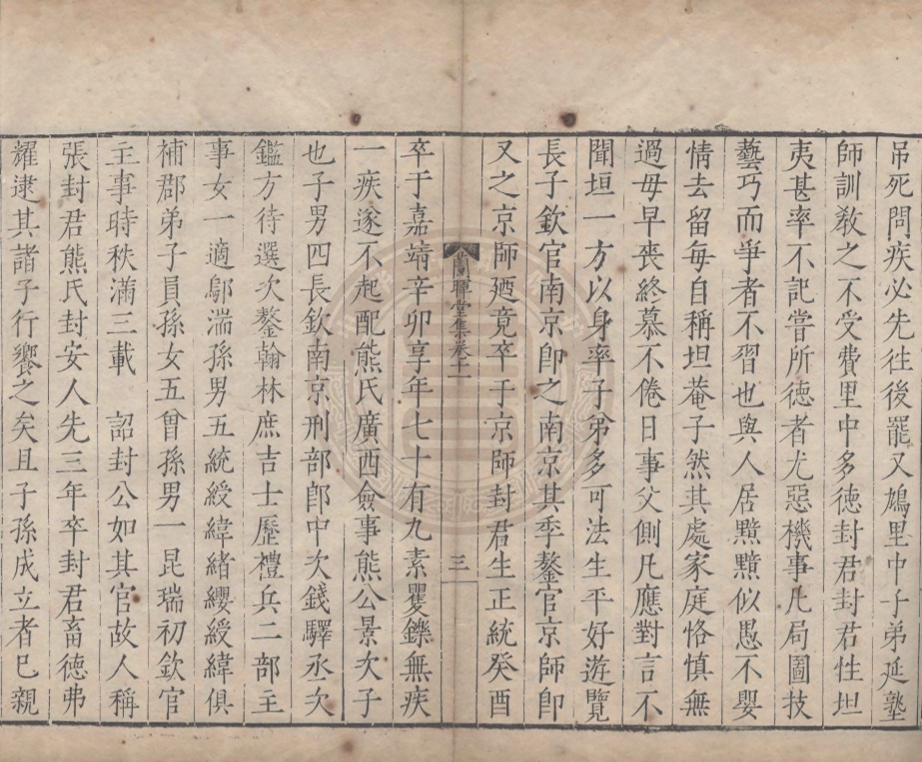 吊死問疾必先往後罷又鳩里中子弟延塾
師訓敎之不受費里中多徳封君封君性坦
夷甚率不記嘗所徳者尤惡機事凢局圖技
藝巧而爭者不習也與人居黙黙似愚不嬰
情去留毎自稱坦菴子然其處家庭恪慎無
過毋早丧終慕不倦日事父側凢應對言不
聞垣一方以身率子弟多可法生平好遊覽
長子欽官南京卽之南京其季鏊官京師卽
又之京師廼竟卒于京師封君生正統癸酉
蘭暉堂集卷十一
三
卒于嘉靖辛卯享年七十有九素矍鑠無疾
一疾遂不起配熊氏廣西僉事熊公景次子
也子男四長欽南京刑部郎中次錢驛丞次
鑑方待選次鏊翰林庶吉士歷禮兵二部主
事女一適鄔湍孫男五統綬緯緒纓綬緯俱
補郡弟子員孫女五曾孫男一昆瑞初欽官
主事時秩滿三載　詔封公如其官故人稱
張封君熊氏封安人先三年卒封君畜德弗
耀逮其諸子行饗之矣且子孫成立者已親